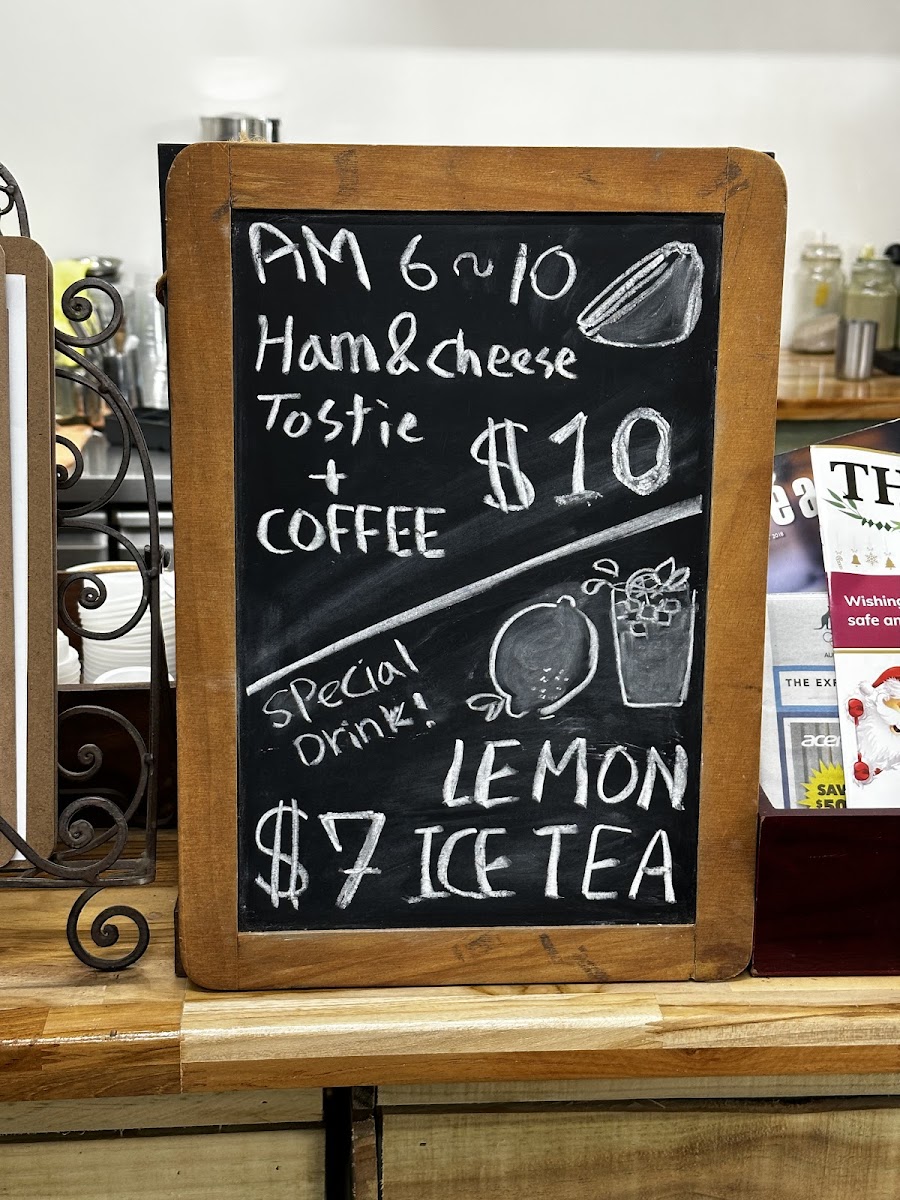 AM 6~10
Ham & cheese
Tostie
+
COFFEE
$10
special
Drink!
LEMON
$7 ICE TEA
TH
Wishing
safe an
THE EXP
acer
SAV
$50
2018